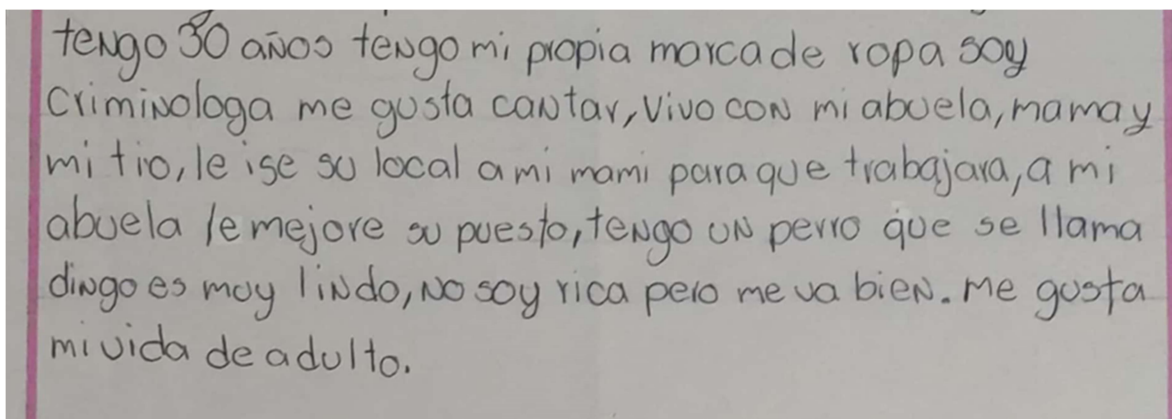 tengo 30 años tengo mi propia marca de ropa soy
criminologa me gusta cantar, vivo con mi abuela, mama y
mi tio, le ise su local a mi mami para que trabajara, a mi
abuela le mejore su puesto, tengo un perro que se llama
dingo es muy lindo, no soy rica pero me va bien. me gusta
mi vida de adulto.